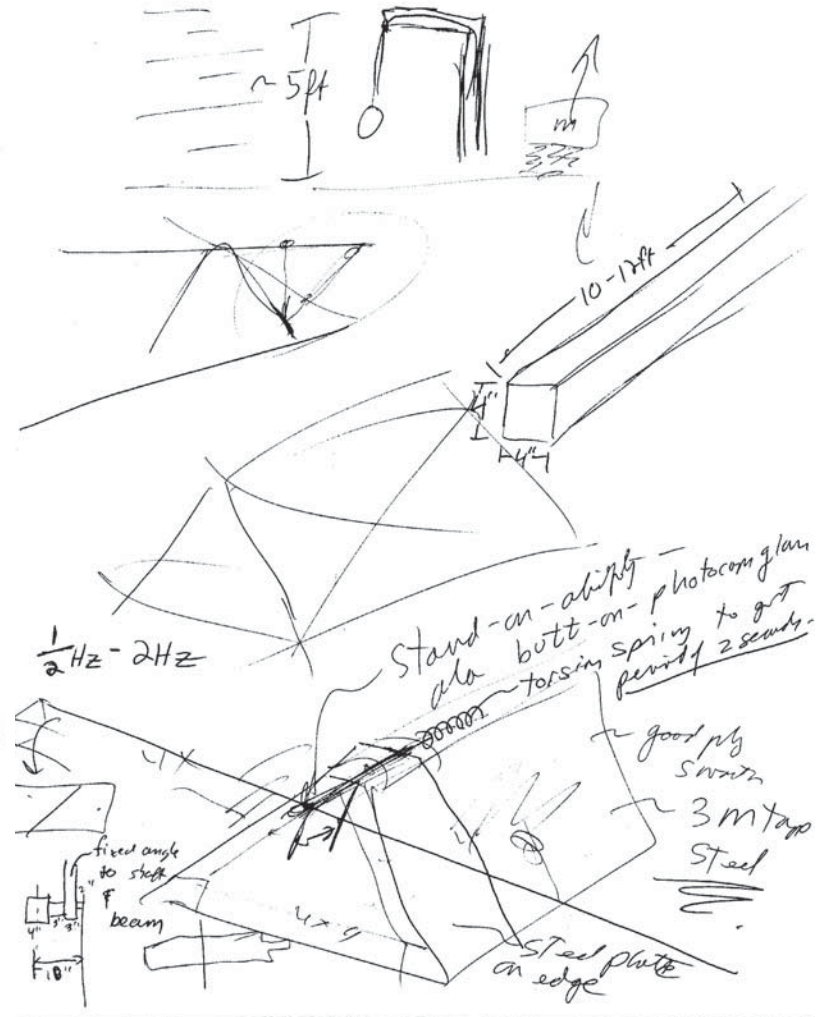 ~ 5ft
m
10-12ft
4"
4"
1/2 Hz - 2Hz
Stand-on-ability —
ala butt-on-photocopy glass
torsion spring to get
period 2 seconds.
~ good ply
~ 3m tape
Steel
fixed angle
to shaft
&
beam
2"
4" 3" 3"
18"
4x
Steel plate
on edge